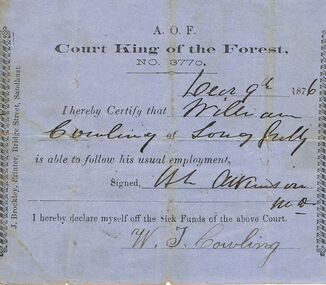 A. O. F.
Court King of the Forest,
NO. 3770.
Decr 9th 1876
I hereby Certify that William
Cowling of Long Gully
is able to follow his usual employment,
Signed, Atkinson
M D
I hereby declare myself off the Sick Funds of the above Court.
W. J. Cowling
J. Brockley, Printer, Bridge Street, Sandhurst.